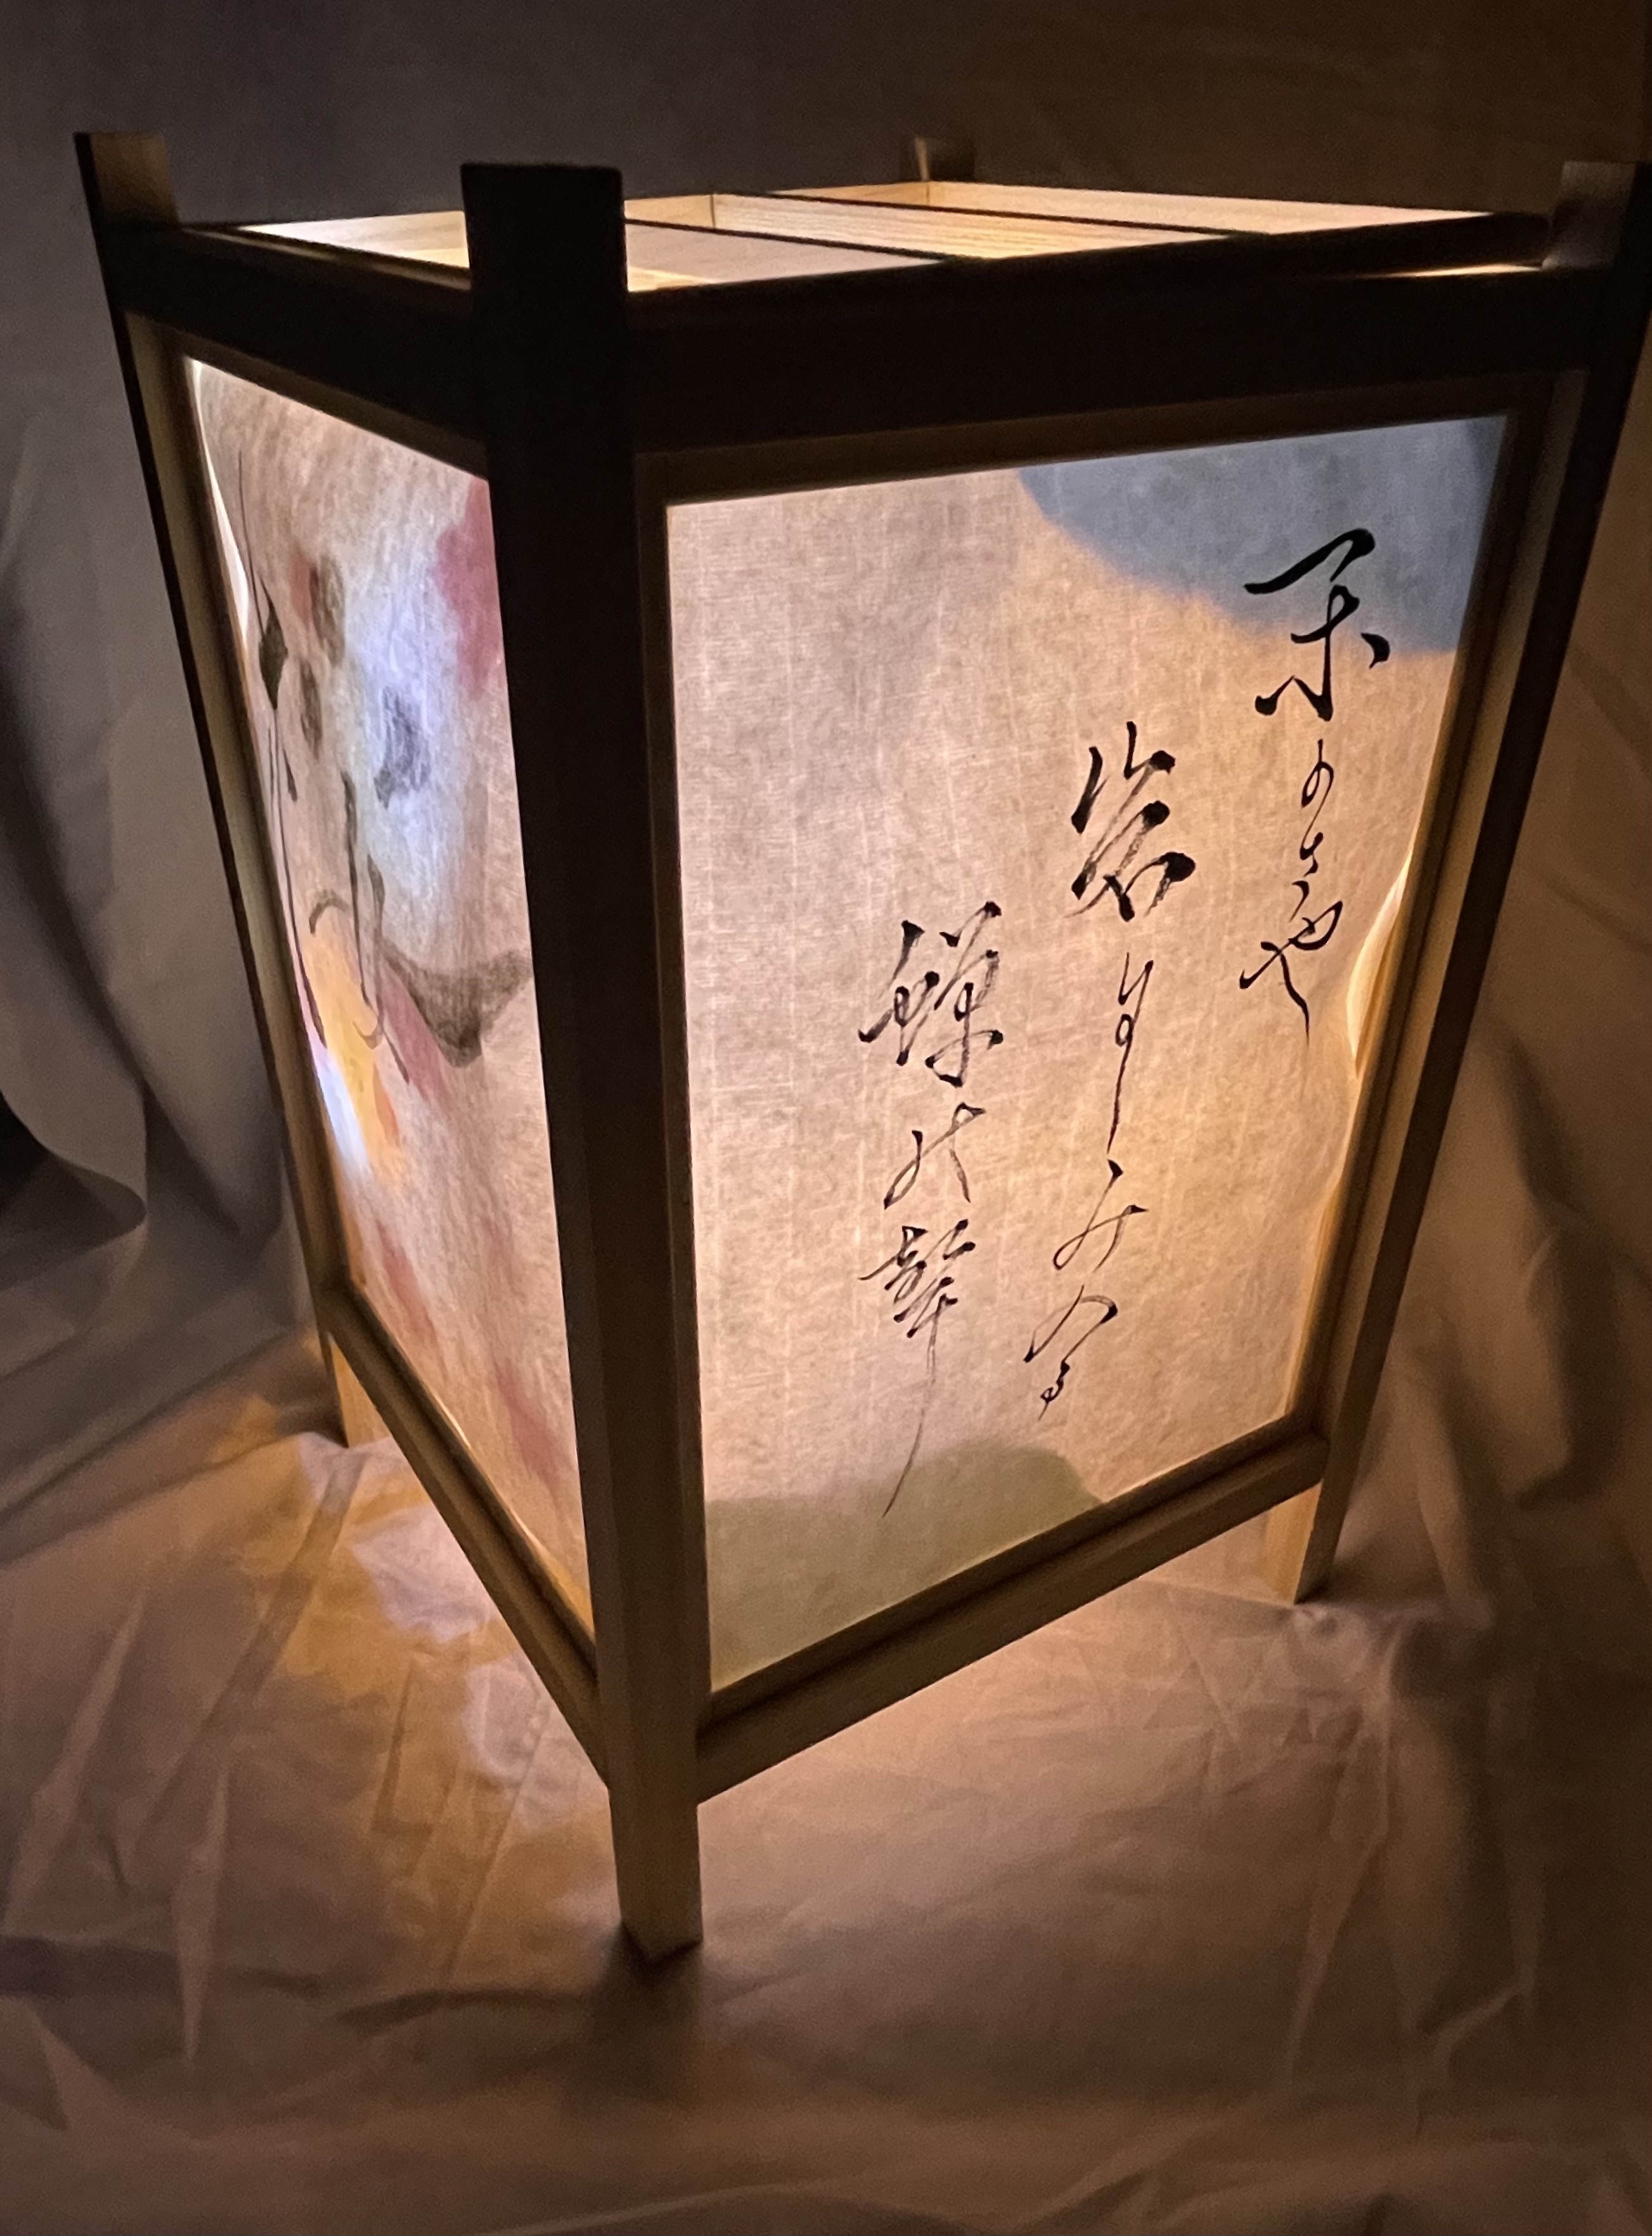 閑かさや
岩にしみ入る
蝉の聲